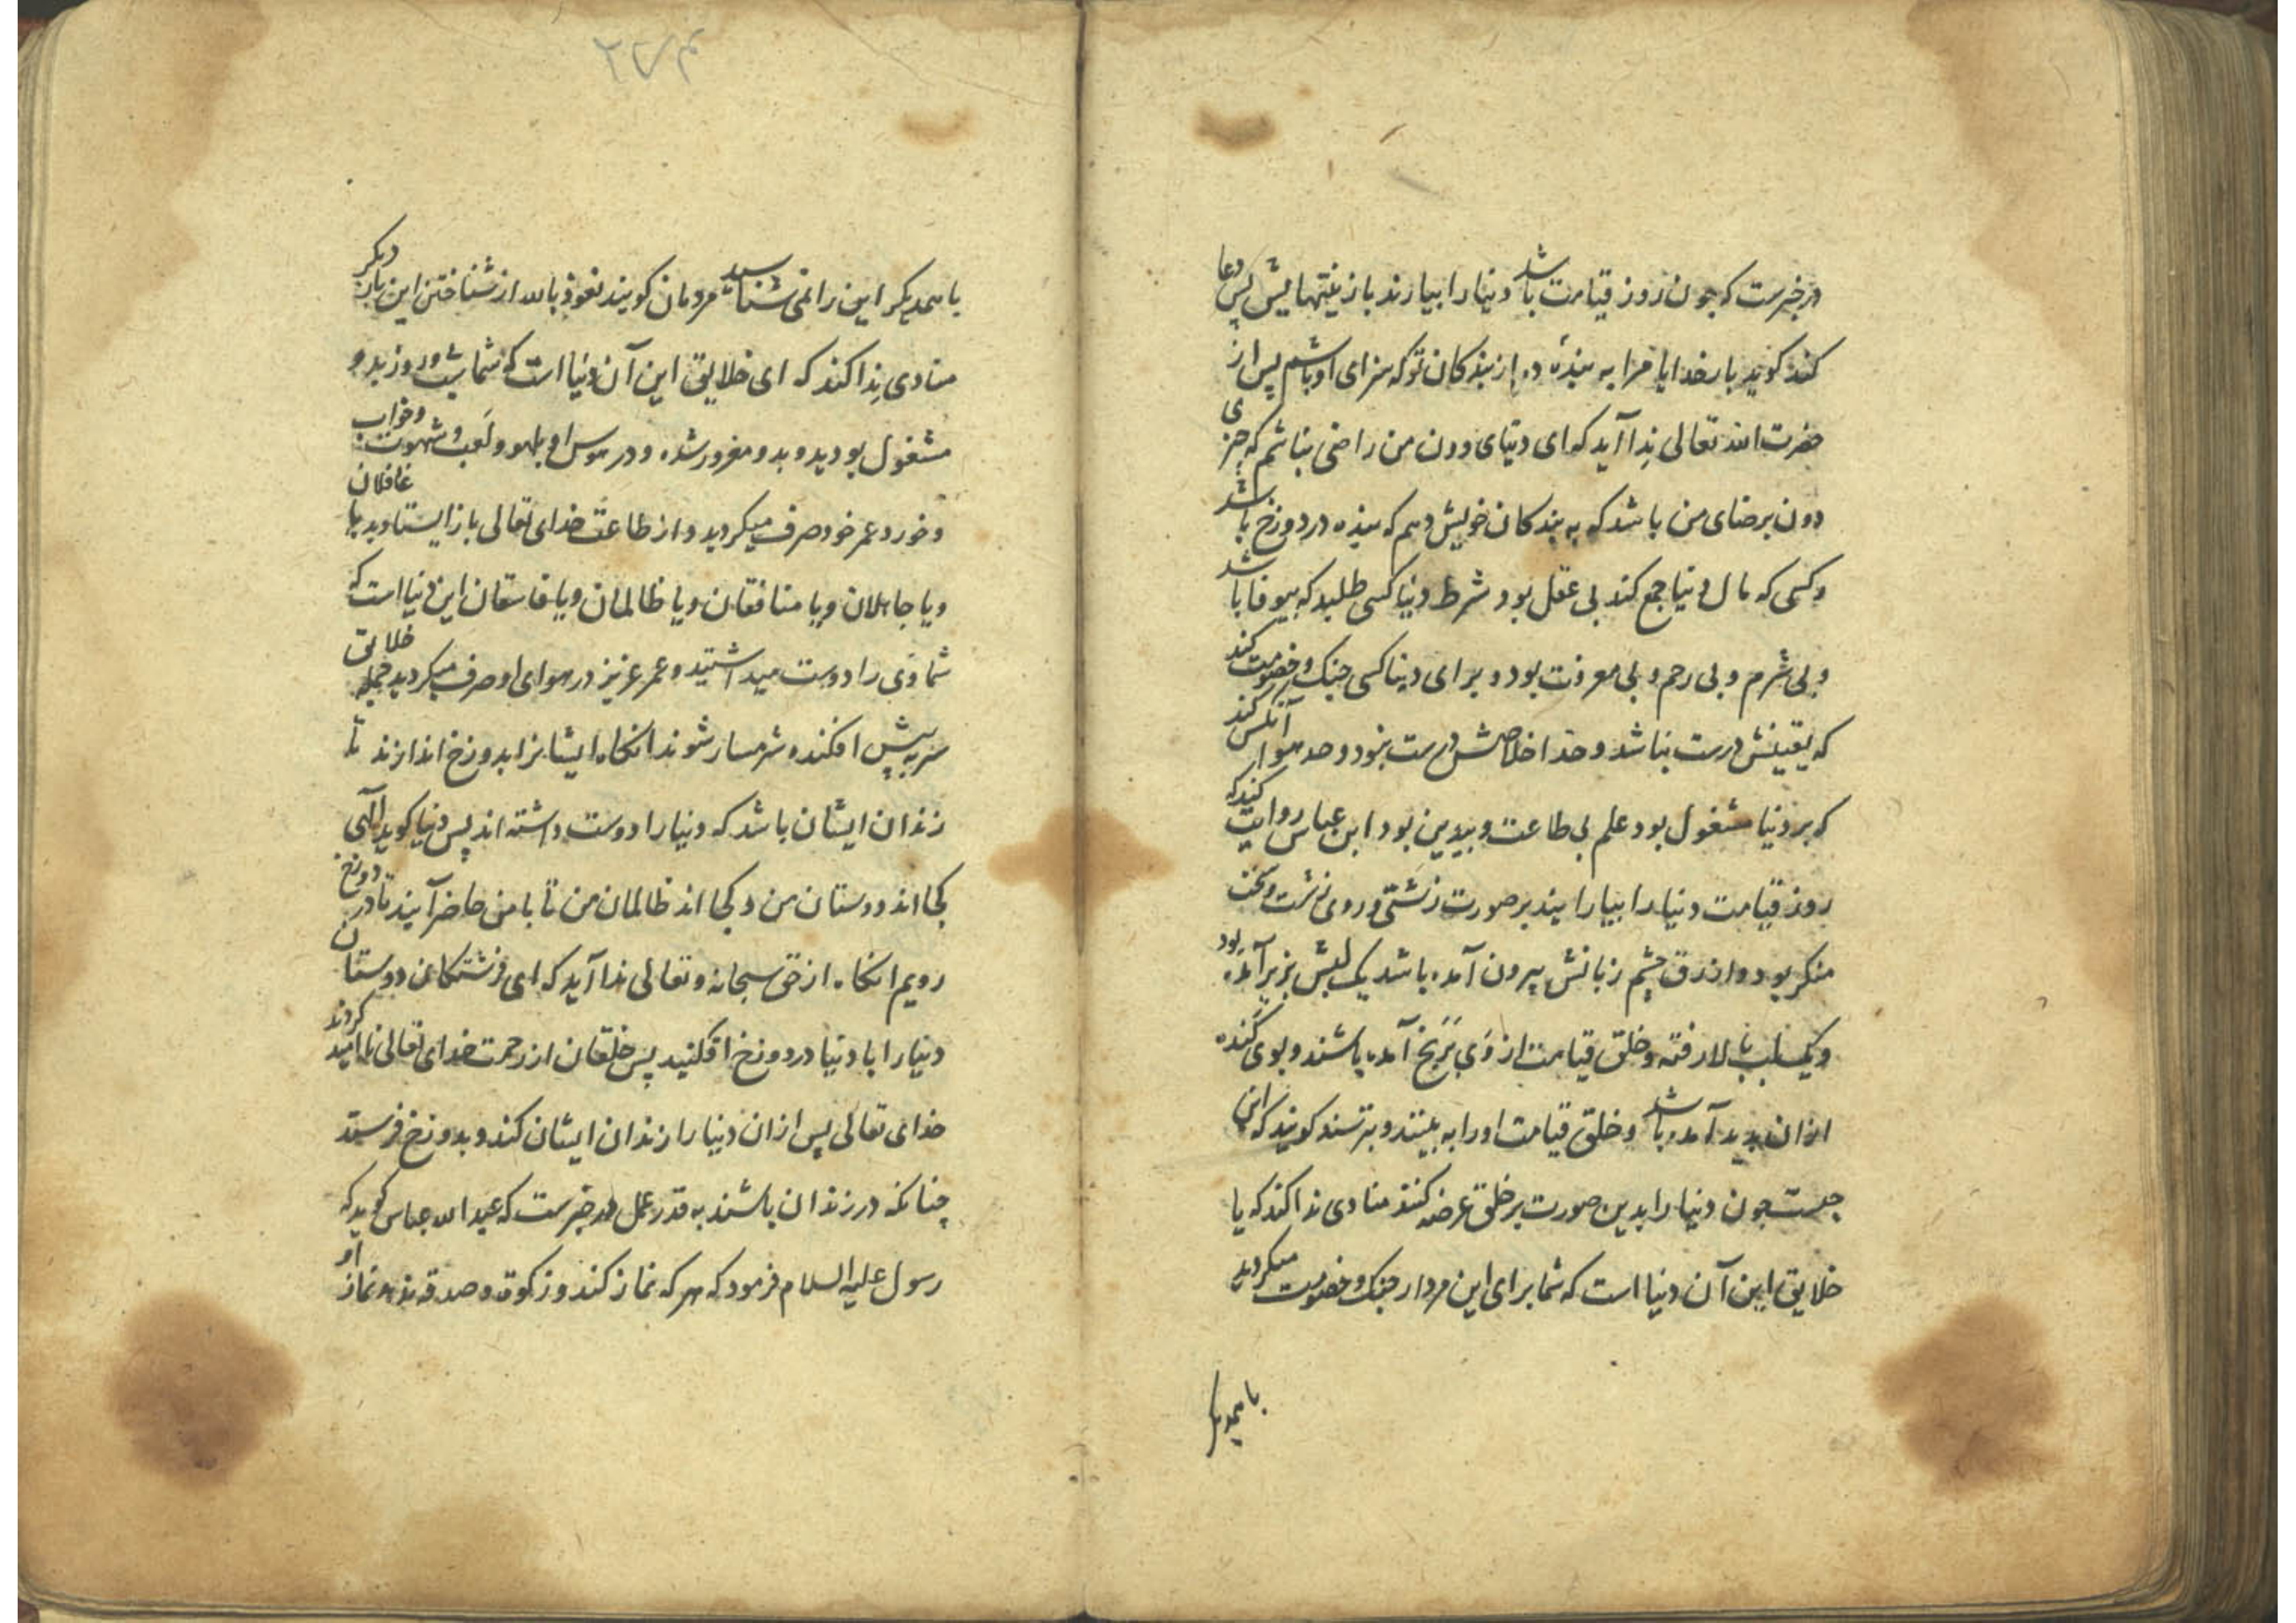 در خبرست که چون روز قیامت باشد دنیا را بیارند با زینتهایش پس دعا
کند کوید بار خدایا مرا به بندهٔ ده از بندکان تو که سزای او باشم پس از
حضرت الله تعالی نِدا آید که ای دنیای دون من راضی نباشم که چیزی
دون برضای من باشد که به بندکان خویش دهم که بنده در دوزخ باشد
و کسی که مال دنیا جمع کند بی عقل بود شرط دنیا کسی طلبد که بیوفا باشد
و بی شرم و بی رحم و بی معرفت بود و برای دینا کسی جنک و خصومت کند
که یقینش درست نباشد و خدا اخلاصش درست نبود و حد هوا آنکس کند
که بر دنیا مشغول بود علم بی طاعت و بیدین بود ابن عباس روایت کند که
روز قیامت دنیا را بیارایند بر صورت زشتی و روی زشت و سخت
منکر بود و ازرق چشم زبانش بیرون آمده باشد یک لبش بزیر آمده بود
و یک لب ببالا رفته و خلق قیامت از وَی بَرَنج آمده باشند و بوی کَنده
ازان بدید آمده باشد و خلق قیامت او را به بینند و بترسند کویند که این
چیست چون دنیا را بدین صورت بر خلق عرضه کنند منادی ندا کند که یا
خلایق این آن دنیا است که شما برای این مردار جنک و خصومت میکردید
با همدیکر
با همدیکر این را نمی شناسید مردمان کویند نعوذ بالله از شناختن این بار دیکر
منادی نِدا کند که ای خلایق این آن دنیا است که شما شب و روز بدو
مشغول بودید و بدو مغرور شده و در هوس او بلهو و لَعب و شهوت و خواب
و خورد عمر خود صرف میکردید و از طاعَت خدای تعالی باز ایستادید یا غافلان
و یا جاهلان و یا منافقان و یا ظالمان و یا فاسقان این دنیا است که
شما وَی را دوست میداشتید و عمر عزیز در هوای او صرف میکردید جمله خلایق
سر به پیش افکنده شرمسار شوند انکاه ایشانرا بدوزخ اندازند تا
زندان ایشان باشد که دنیا را دوست داشته اند پس دنیا کوید الٓهی
کجا اند دوستان من و کجا اند ظالمان من تا با من حاضر آیند تا در دوزخ
رویم انکاه از حق سبحانه و تعالی ندا آید که ای فرشتکان من دوستان
دنیا را با دنیا در دوزخ افکنید پس خلقان از رحمت خدای تعالی نا امید کردند
خدای تعالی پس ازان دنیا را زندان ایشان کند و بدوزخ فرستد
چنانکه در زندان باشند به قدر عمل در خبرست که عبد الله عباس کوید که
رسول علیه السلام فرمود که هر که نماز کند و زکوة و صدقه ندهد نماز او